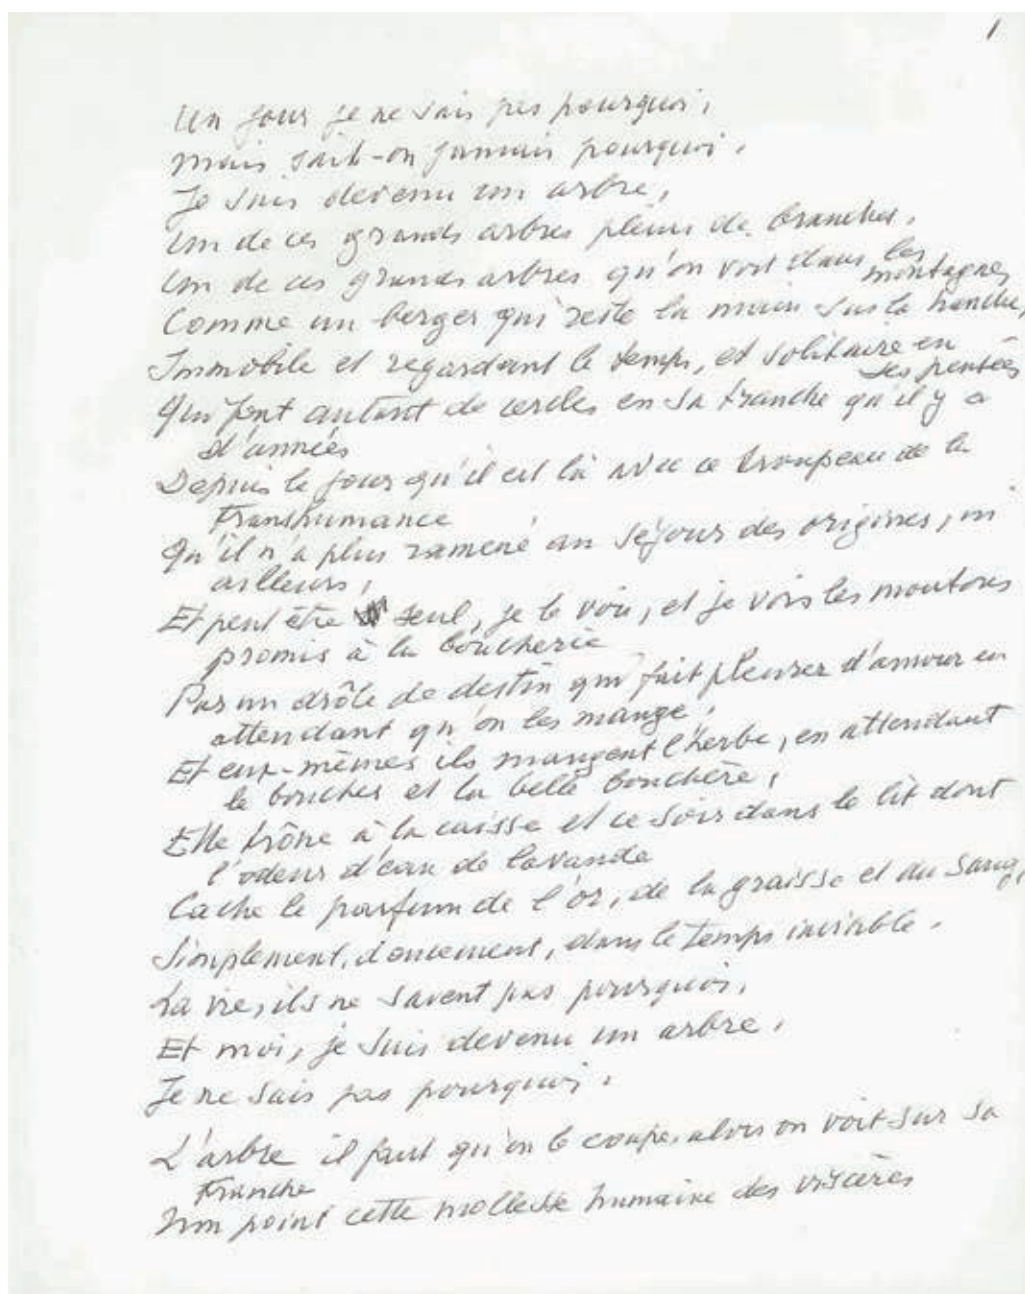 1
Un jour je ne sais pas pourquoi,
Mais sait-on jamais pourquoi,
Je suis devenu un arbre,
Un de ces grands arbres pleins de branches,
Un de ces grands arbres qu'on voit dans les
montagnes
Comme un berger qui reste la main sur la hanche,
Immobile et regardant le temps, et solitaire en
ses pensées
Qui font autant de cercles en sa tranche qu'il y a
d'années
Depuis le jour qu'il est là avec ce troupeau de la
transhumance
Qu'il n'a plus ramené au séjour des origines, ni
ailleurs,
Et peut être seul, je le vois, et je vois les moutons
promis à la boucherie
Par un drôle de destin qui fait pleurer d'amour en
attendant qu'on les mange,
Et eux-mêmes ils mangent l'herbe, en attendant
le boucher et la belle bouchère,
Elle trône à la caisse et ce soir dans le lit dont
l'odeur d'eau de lavande
Cache le parfum de l'or, de la graisse et du sang,
Simplement, doucement, dans le temps invisible.
La vie, ils ne savent pas pourquoi,
Et moi, je suis devenu un arbre,
Je ne sais pas pourquoi.
L'arbre il faut qu'on le coupe, alors on voit sur sa
tranche
Non point cette mollesse humaine des viscères